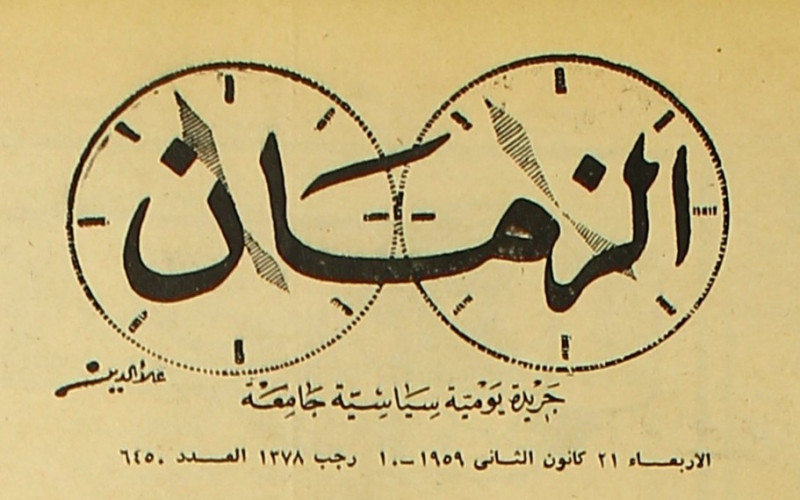 الزمان
علاء الدين
جريدة يومية سياسية جامعة
الاربعاء ٢١ كانون الثانى ١٩٥٩ـ ١٠ رجب ١٣٧٨ العدد ٦٤٥٠